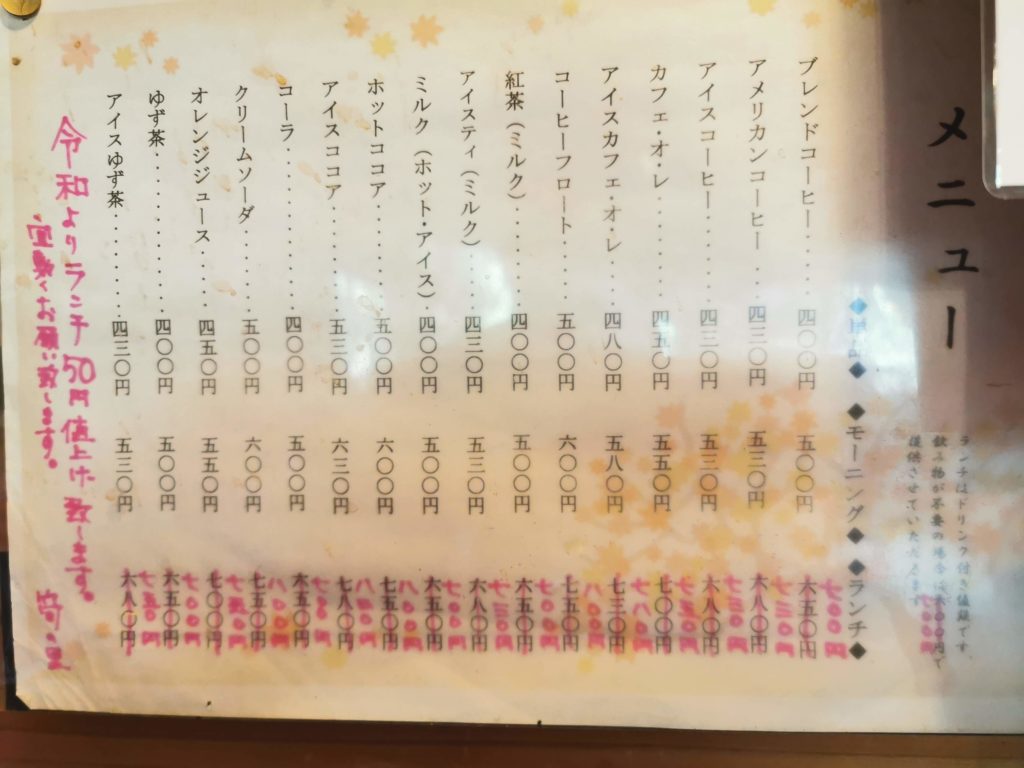 メニュー
ランチはドリンク付き値段です
飲み物が不要の場合は 円で
提供させていただきます
◆単品◆ ◆モーニング◆ ◆ランチ◆
ブレンドコーヒー・・・・四〇〇円 五〇〇円 六五〇円 七〇〇円
アメリカンコーヒー・・・四三〇円 五三〇円 六八〇円 七三〇円
アイスコーヒー・・・・・四三〇円 五三〇円 六八〇円 七三〇円
カフェ・オ・レ・・・・・・四五〇円 五五〇円 七〇〇円 七五〇円
アイスカフェ・オ・レ・・・四八〇円 五八〇円 七三〇円
コーヒーフロート・・・・五〇〇円 六〇〇円 七五〇円 八〇〇円
紅茶（ミルク）・・・・・・四〇〇円 五〇〇円 六五〇円 七〇〇円
アイスティ（ミルク）・・・四三〇円 五三〇円 六八〇円
ミルク（ホット・アイス）・四〇〇円 五〇〇円 六五〇円 七〇〇円
ホットココア・・・・・・五〇〇円 六〇〇円 七五〇円 八〇〇円
アイスココア・・・・・・五三〇円 六三〇円 七八〇円
コーラ・・・・・・・・・四〇〇円 五〇〇円 六五〇円 七〇〇円
クリームソーダ・・・・・五〇〇円 六〇〇円 七五〇円 八〇〇円
オレンジジュース・・・・四五〇円 五五〇円 七〇〇円 七五〇円
ゆず茶・・・・・・・・・四〇〇円 五〇〇円 六五〇円 七〇〇円
アイスゆず茶・・・・・・四三〇円 五三〇円 六八〇円
令和よりランチ50円値上げ致します。
宜敷くお願い致します。